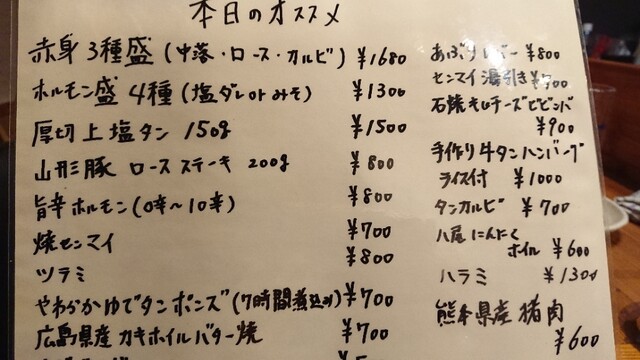 本日のオススメ
赤身3種盛(中落・ロース・カルビ) ¥1680
ホルモン盛4種(塩ダレorみそ) ¥1300
厚切上塩タン 150g ¥1500
山形豚ロースステーキ 200g ¥800
旨辛ホルモン(0辛〜10辛) ¥800
焼センマイ ¥700
ツラミ ¥800
やわらかゆでタンポンズ(7時間煮込み) ¥700
広島県産カキホイルバター焼 ¥700
あぶりレバー ¥800
センマイ湯引き ¥700
石焼きムチーズビビンバ
¥900
手作り牛タンハンバーグ
ライス付 ¥1000
タンカルビ ¥700
八尾にんにく
ホイル ¥600
ハラミ ¥1300
熊本県産猪肉
¥600